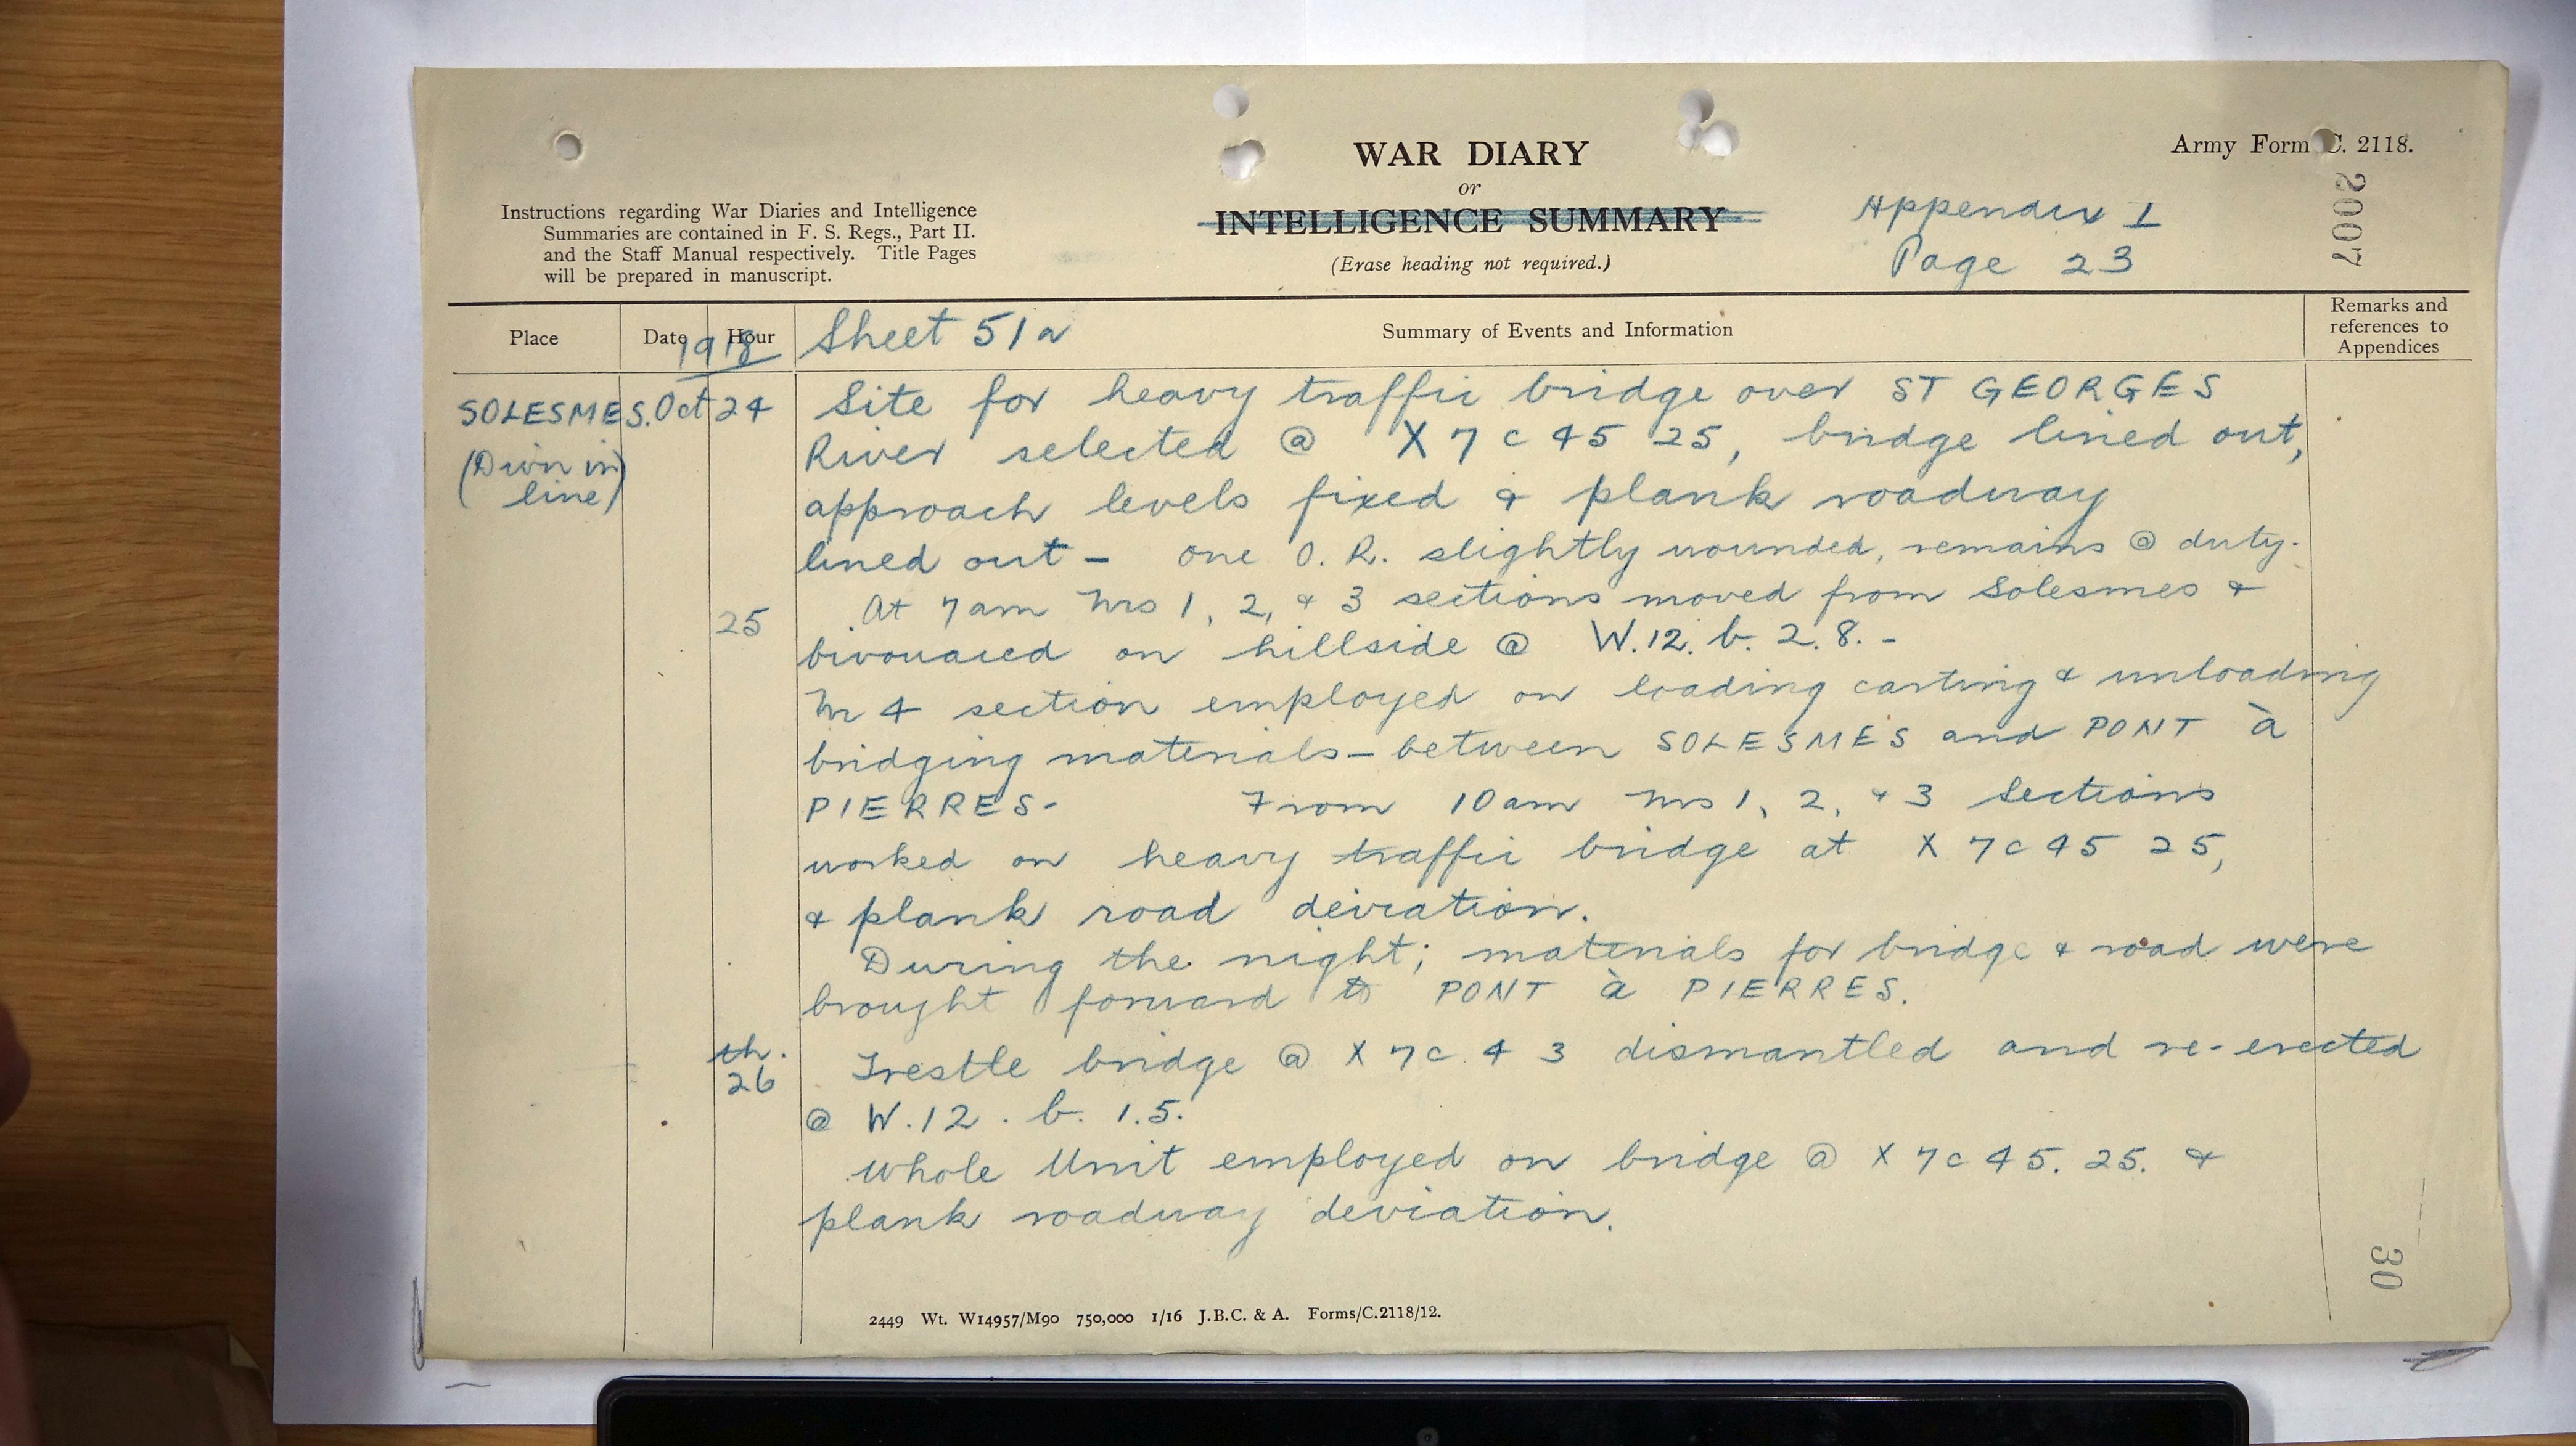 WAR DIARY
or
INTELLIGENCE SUMMARY
(Erase heading not required.)
Army Form C. 2118.
Instructions regarding War Diaries and Intelligence
Summaries are contained in F. S. Regs., Part II.
and the Staff Manual respectively. Title Pages
will be prepared in manuscript.
Appendix I
Page 23
2007
Place
Date
Hour
1918
Sheet 51a
Summary of Events and Information
Remarks and
references to
Appendices
SOLESMES. Oct 24
(Divn in
line)
Site for heavy traffic bridge over ST GEORGES
River selected @ X 7 c 45 25, bridge lined out,
approach levels fixed & plank roadway
lined out – one O. R. slightly wounded, remains @ duty.
25
At 7am Nos 1, 2, & 3 sections moved from Solesmes &
bivouaced on hillside @ W.12. b. 2.8. –
No 4 section employed on loading carting & unloading
bridging materials – between SOLESMES and PONT à
PIERRES – From 10am Nos 1, 2, & 3 Sections
worked on heavy traffic bridge at X 7 c 45 25,
& plank road deviation.
During the night; materials for bridge & road were
brought forward to PONT à PIERRES.
th.
26
Trestle bridge @ X 7 c 4 3 dismantled and re-erected
@ W.12. b. 1.5.
Whole Unit employed on bridge @ X 7 c 45. 25. &
plank roadway deviation.
30
2449 Wt. W14957/M90 750,000 1/16 J.B.C. & A. Forms/C.2118/12.